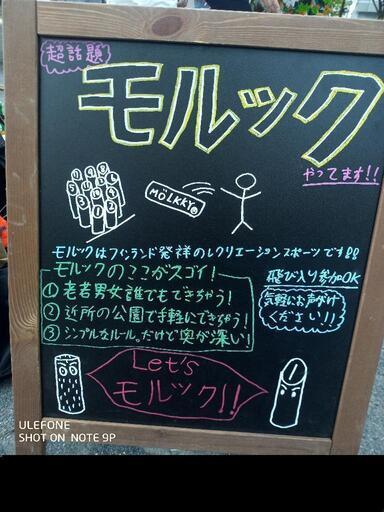 超話題
モルック
やってます!!
MÖLKKY®
モルックはフィンランド発祥のレクリエーションスポーツです!!
モルックのここがスゴイ!
① 老若男女誰でもできちゃう!
② 近所の公園で手軽にできちゃう!
③ シンプルなルール。だけど奥が深い!
飛び入り参加OK
気軽にお声がけ
ください!!
Let's
モルック!!
ULEFONE
SHOT ON NOTE 9P